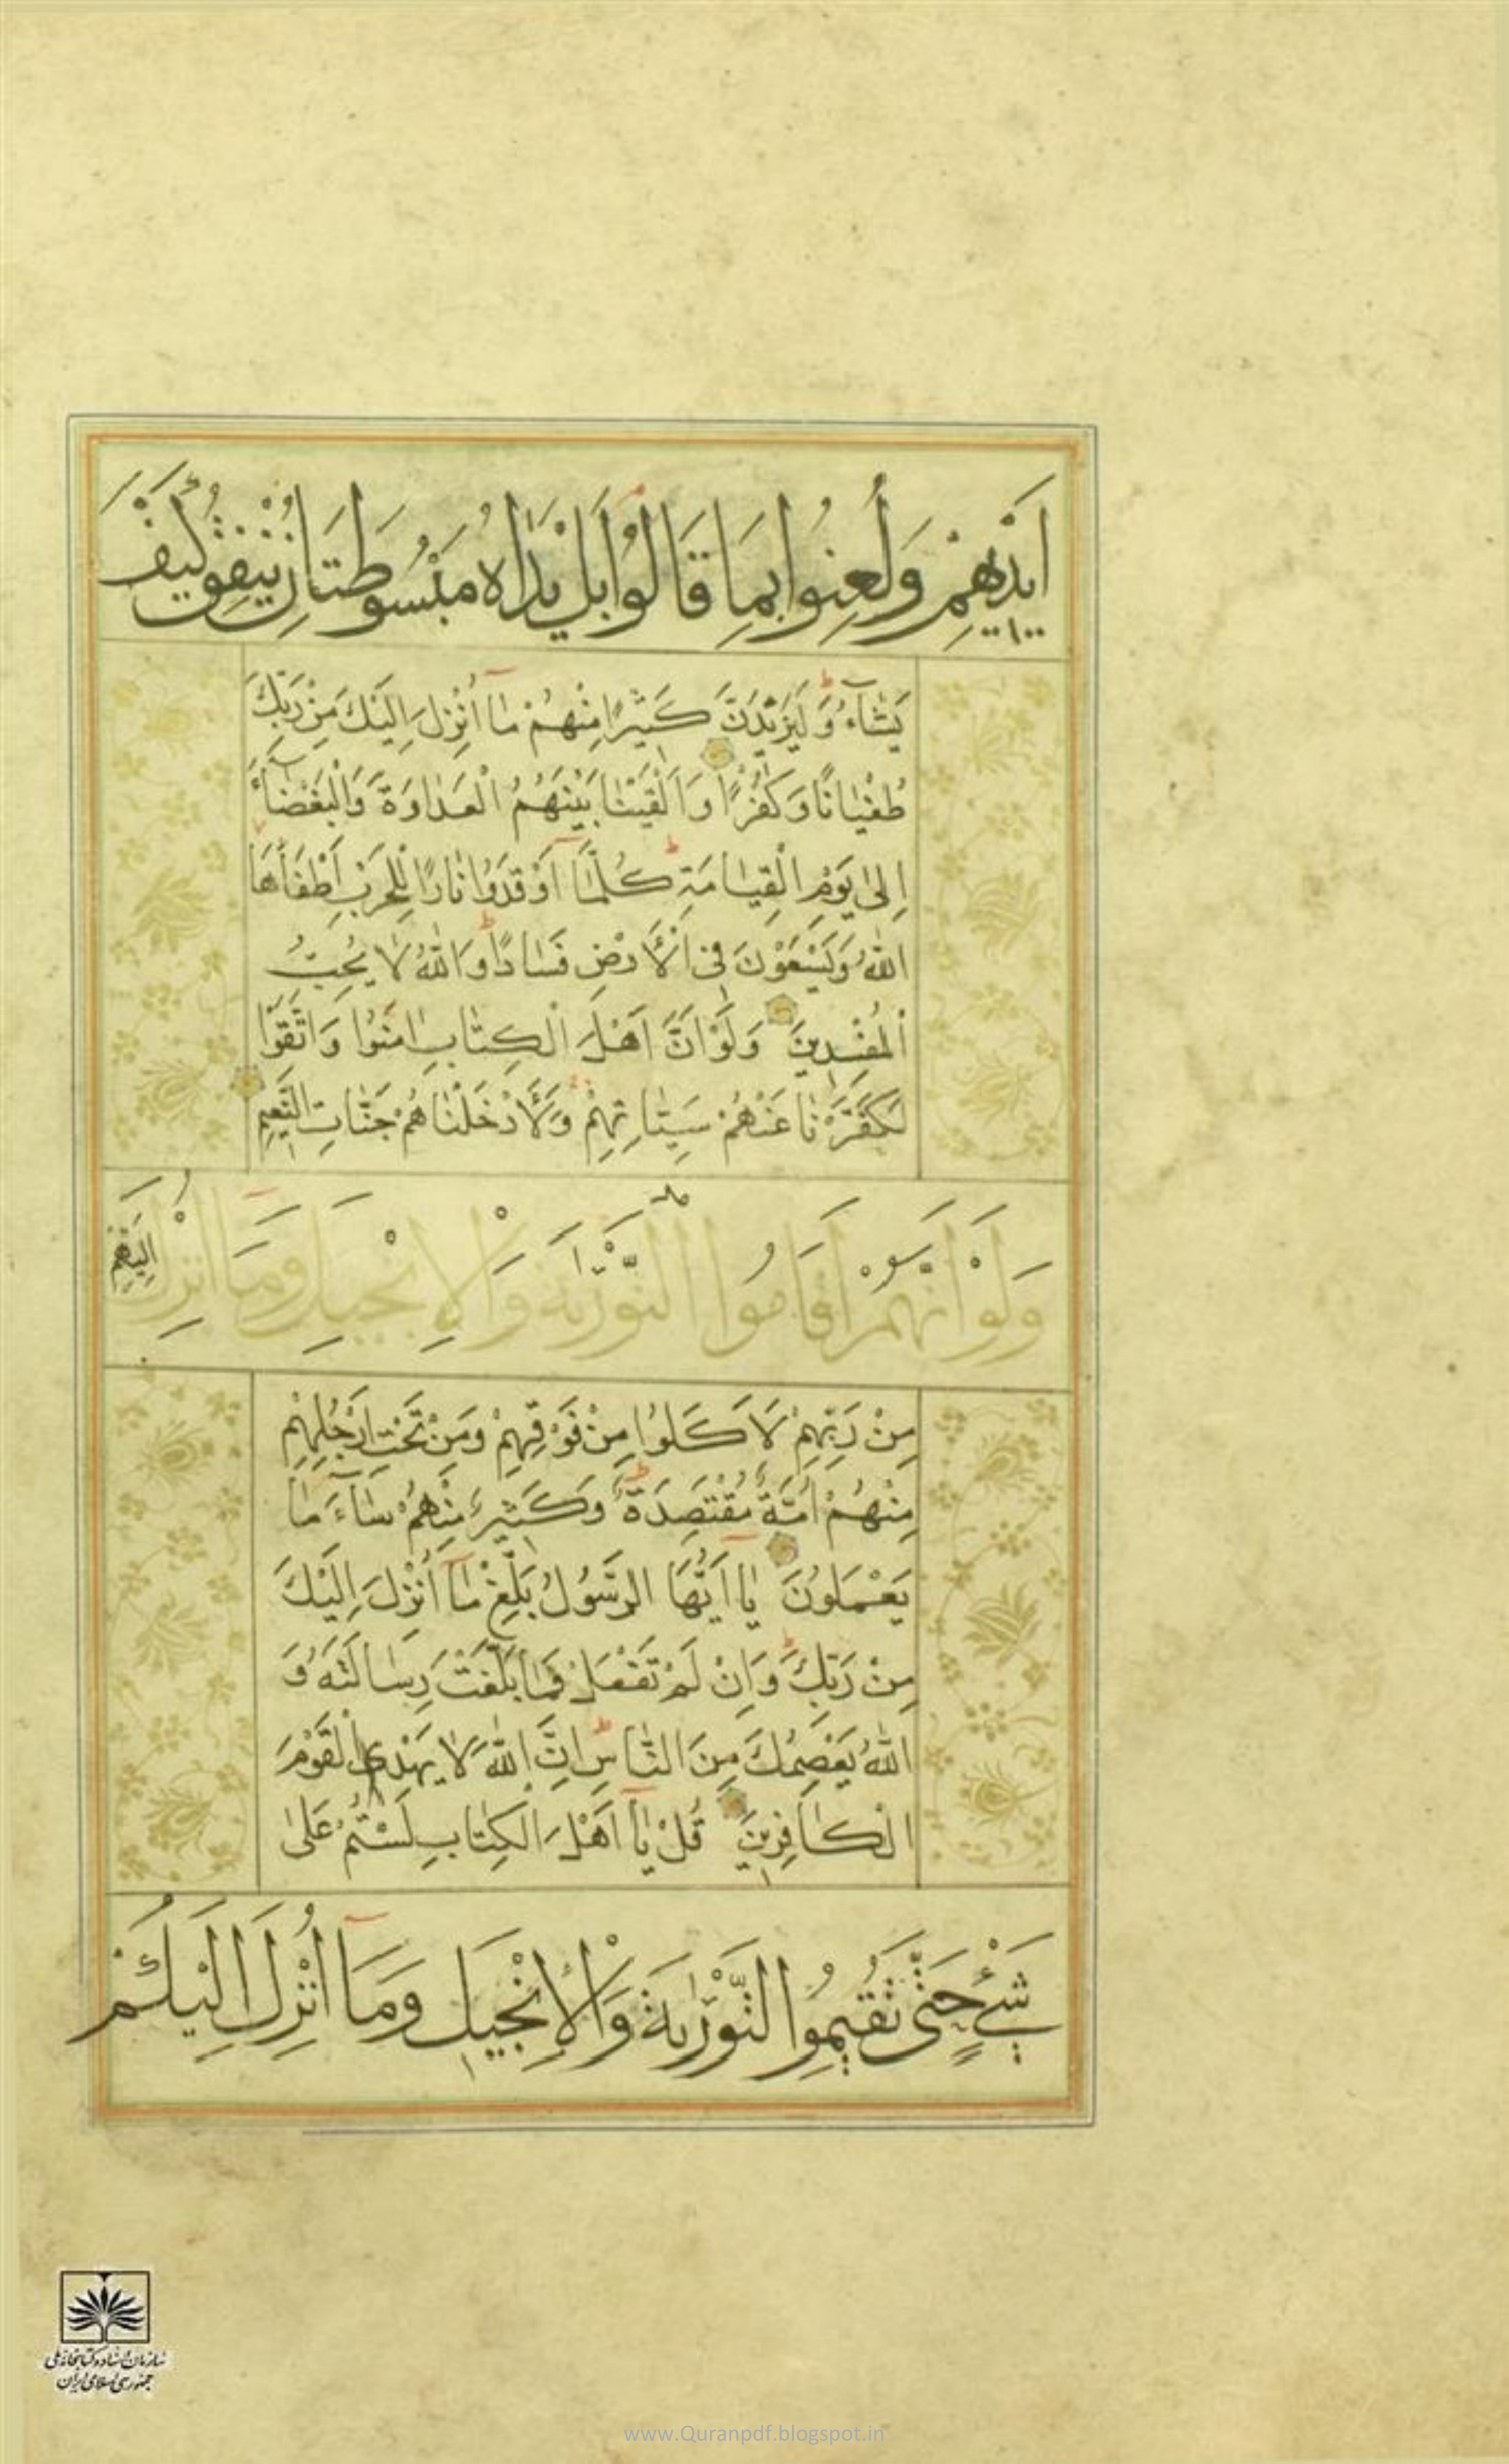 اَيْدِيهِمْ وَلُعِنُوا بِمَا قَالُوا بَلْ يَدَاهُ مَبْسُوطَتَانِ يُنْفِقُ كَيْفَ
يَشَاۤءُ وَلَيَزِيْدَنَّ كَثِيْرًا مِنْهُمْ مَاۤ اُنْزِلَ اِلَيْكَ مِنْ رَبِّكَ
طُغْيَانًا وَكُفْرًا وَاَلْقَيْنَا بَيْنَهُمُ الْعَدَاوَةَ وَالْبَغْضَاۤءَ
اِلىٰ يَوْمِ الْقِيَامَةِ كُلَّمَاۤ اَوْقَدُوا نَارًا لِلْحَرْبِ اَطْفَاَهَا
اللّٰهُ وَيَسْعَوْنَ فِى الْاَرْضِ فَسَادًا وَاللّٰهُ لَا يُحِبُّ
الْمُفْسِدِينَ وَلَوْ اَنَّ اَهْلَ الْكِتَابِ اٰمَنُوا وَاتَّقَوْا
لَكَفَّرْنَا عَنْهُمْ سَيِّئَاتِهِمْ وَلَاَدْخَلْنَاهُمْ جَنَّاتِ النَّعِيمِ
وَلَوْ اَنَّهُمْ اَقَامُوا التَّوْرٰيةَ وَالْاِنْجِيلَ وَمَاۤ اُنْزِلَ اِلَيْهِمْ
مِنْ رَبِّهِمْ لَاَكَلُوا مِنْ فَوْقِهِمْ وَمِنْ تَحْتِ اَرْجُلِهِمْ
مِنْهُمْ اُمَّةٌ مُقْتَصِدَةٌ وَكَثِيرٌ مِنْهُمْ سَاۤءَ مَا
يَعْمَلُونَ يَاۤ اَيُّهَا الرَّسُولُ بَلِّغْ مَاۤ اُنْزِلَ اِلَيْكَ
مِنْ رَبِّكَ وَاِنْ لَمْ تَفْعَلْ فَمَا بَلَّغْتَ رِسَالَتَهُ وَ
اللّٰهُ يَعْصِمُكَ مِنَ النَّاسِ اِنَّ اللّٰهَ لَا يَهْدِى الْقَوْمَ
الْكَافِرِينَ قُلْ يَاۤ اَهْلَ الْكِتَابِ لَسْتُمْ عَلىٰ
شَىْءٍ حَتّٰى تُقِيمُوا التَّوْرٰيةَ وَالْاِنْجِيلَ وَمَاۤ اُنْزِلَ اِلَيْكُمْ
سازمان اسناد و کتابخانه ملی
جمهوری اسلامی ایران
www.Quranpdf.blogspot.in